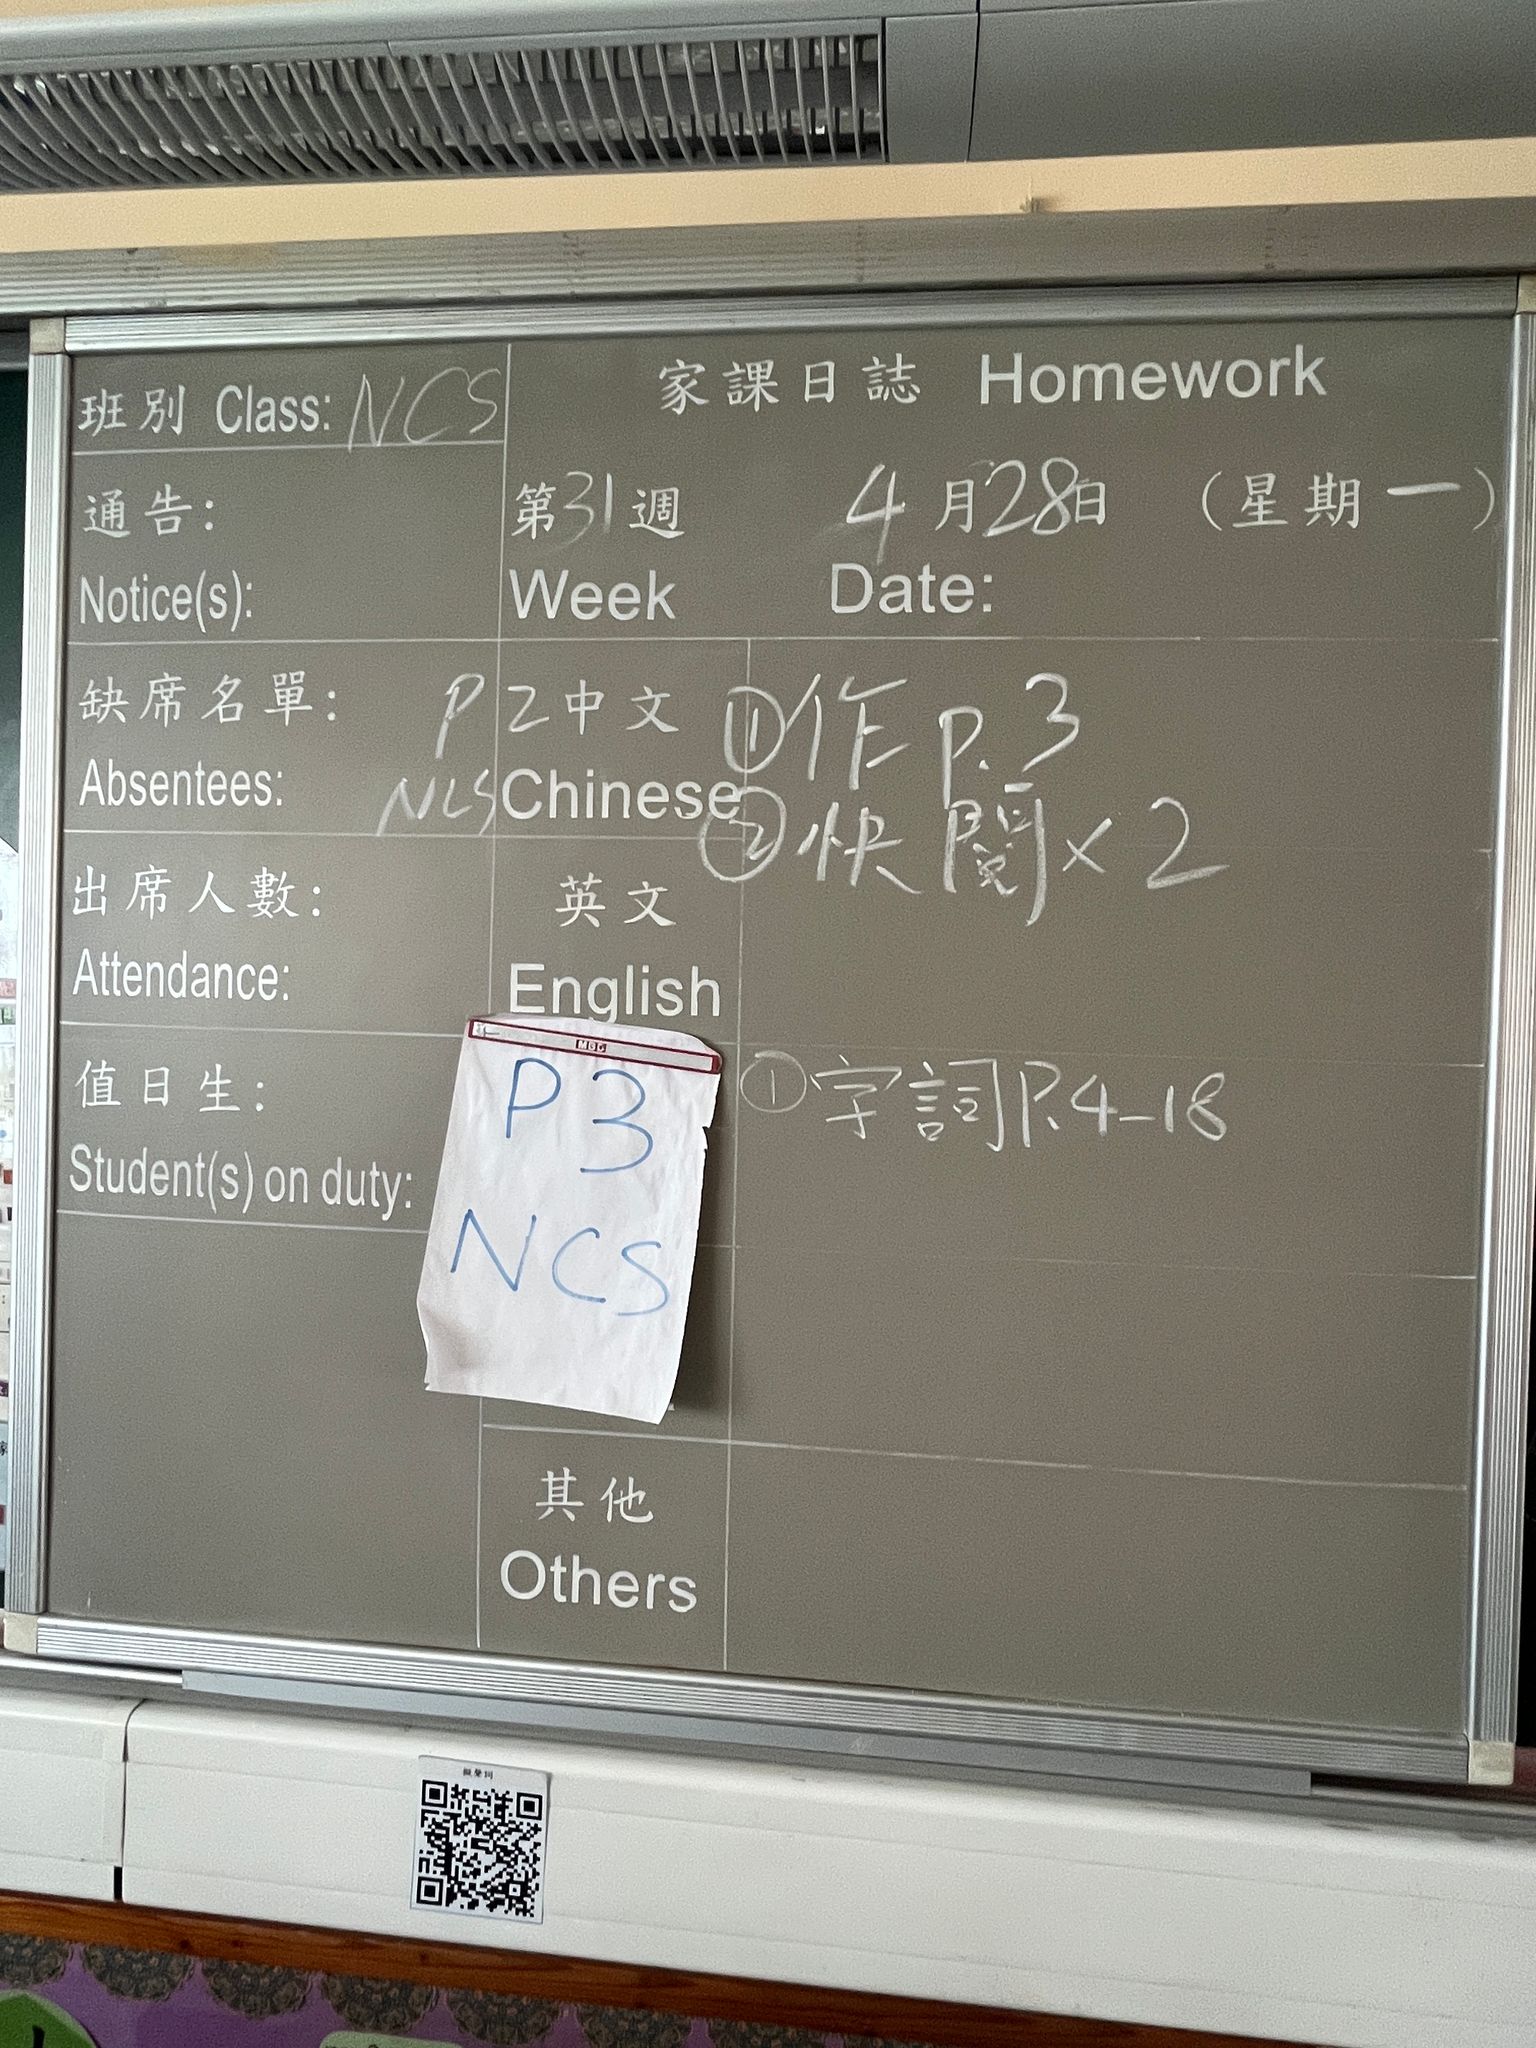 班別 Class: NCS
家課日誌 Homework
通告:
Notice(s):
第31週 4月28日 (星期一)
Week Date:
缺席名單:
Absentees:
P2 中文
NCS Chinese
①作 P.3
②快閱×2
出席人數:
Attendance:
英文
English
值日生:
Student(s) on duty:
P3
NCS
①字詞P.4-18
其他
Others
擬聲詞